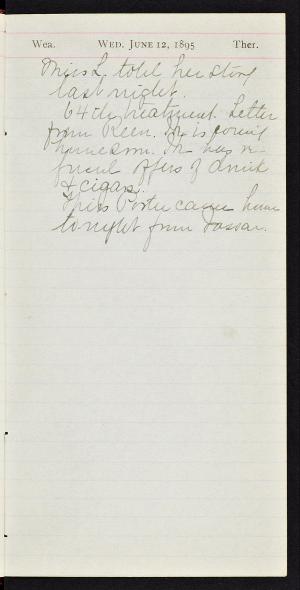 Wea. WED. JUNE 12, 1895 Ther.
Miss L. told her story
last night.
64th treatment. Letter
from Keen. He is
handsome. He has re-
fused offers of drink
& cigars.
Miss Porter came home
tonight from Vassar.